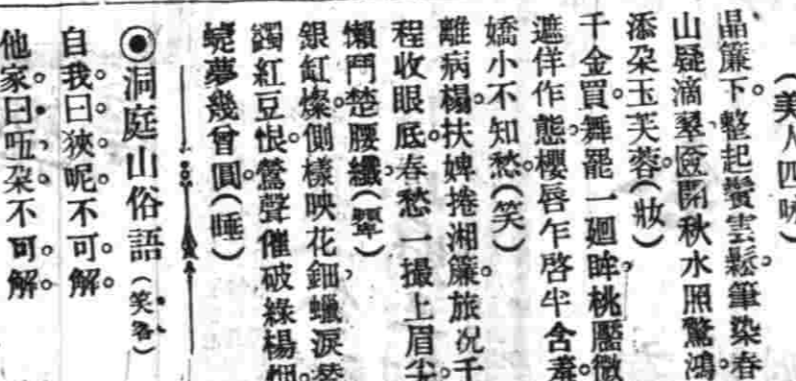 （美人四咏）
晶簾下。整起鬢雲鬆。筆染春
山疑滴翠、奩開秋水照驚鴻。
添朶玉芙蓉（妝）
千金買。舞罷一廻眸、桃靨微
遮佯作態、櫻唇乍啓半含羞。
嬌小不知愁（笑）
離病榻。扶婢捲湘簾。旅况千
程收眼底、春愁一撮上眉尖。
懶鬥楚腰纖（顰）
銀缸燦。側樣映花鈿、蠟淚
蠲紅豆恨。鶯聲催破綠楊烟。
蜨夢幾曾圓（睡）
◉洞庭山俗語（笑岩）
自我曰狹呢不可解。
他家曰㕶朶不可解。